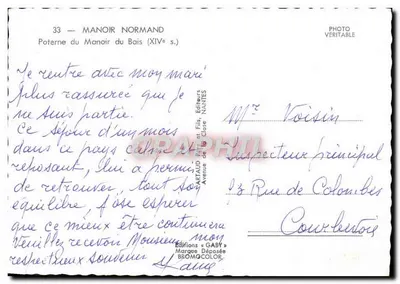 33 — MANOIR NORMAND
Poterne du Manoir du Bais (XIVe s.)
PHOTO
VERITABLE
Je rentre avec mon mari
plus rassurée que je
ne suis partie.
Ce séjour d'un mois
dans ce pays calme et
reposant, lui a permis
de retrouver, tout son
équilibre, j'ose espérer
que ce mieux être continuera
Veuillez recevoir Monsieur mon
respectueux souvenir
ARTAUD Père et Fils, Éditeurs
Avenue de la Close NANTES
Mr Voisin
Inspecteur principal
23 Rue de Colombes
Courbevoie
Editions « GABY »
Marque Déposée
BROMOCOLOR